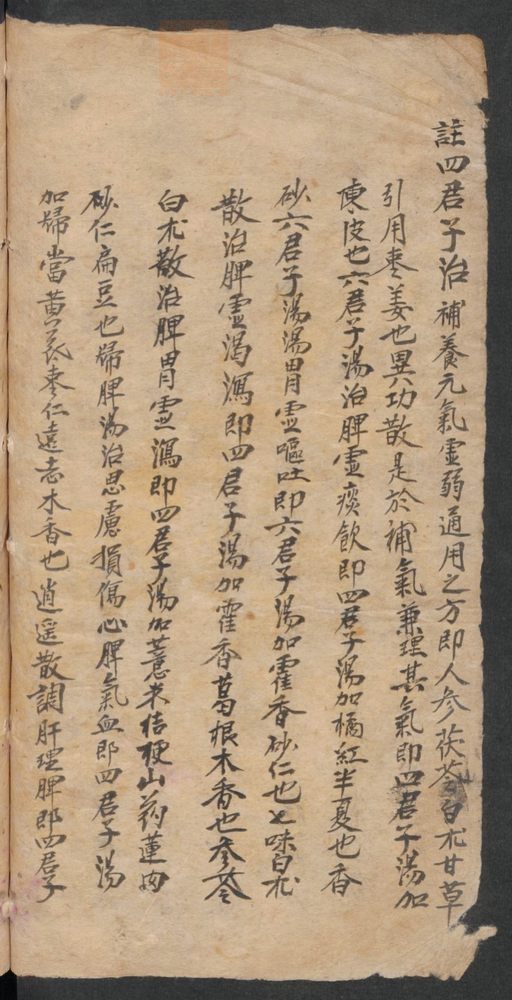 註四君子治補養元氣虛弱通用之方即人參茯苓白朮甘草
引用枣姜也異功散是於補氣兼理其氣即四君子湯加
陳皮也六君子湯治脾虛痰飲即四君子湯加橘紅半夏也香
砂六君子湯湯胃虛嘔吐即六君子湯加霍香砂仁也七味白朮
散治脾虛渴瀉即四君子湯加霍香葛根木香也參苓
白朮散治脾胃虛瀉即四君子湯加薏米桔梗山药蓮肉
砂仁扁豆也歸脾湯治思慮損傷心脾氣血即四君子湯
加歸當黃芪枣仁遠志木香也逍遥散調肝理脾即四君子